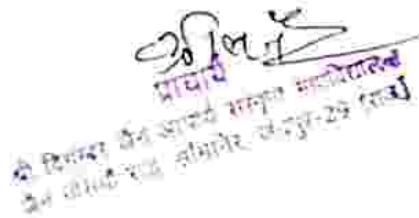 प्राचार्य
श्री दिगम्बर जैन आचार्य संस्कृत महाविद्यालय
जैन नसियाँ रोड सांगानेर, जयपुर-29 (राज.)